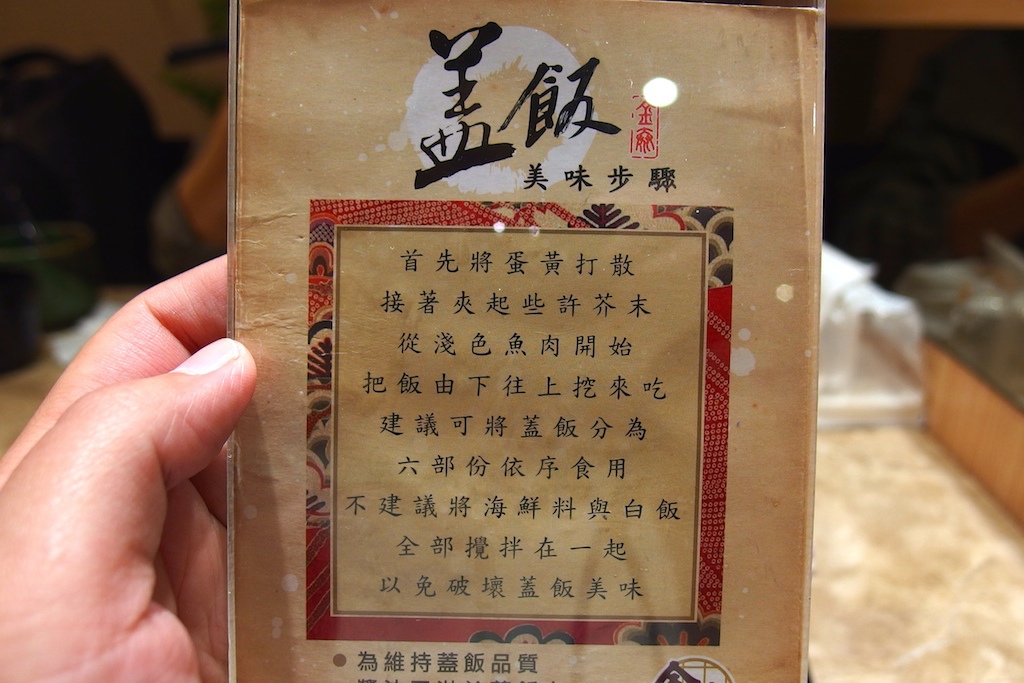 盖飯
美味步驟
首先將蛋黃打散
接著夾起些許芥末
從淺色魚肉開始
把飯由下往上挖來吃
建議可將蓋飯分為
六部份依序食用
不建議將海鮮料與白飯
全部攪拌在一起
以免破壞蓋飯美味
為維持蓋飯品質